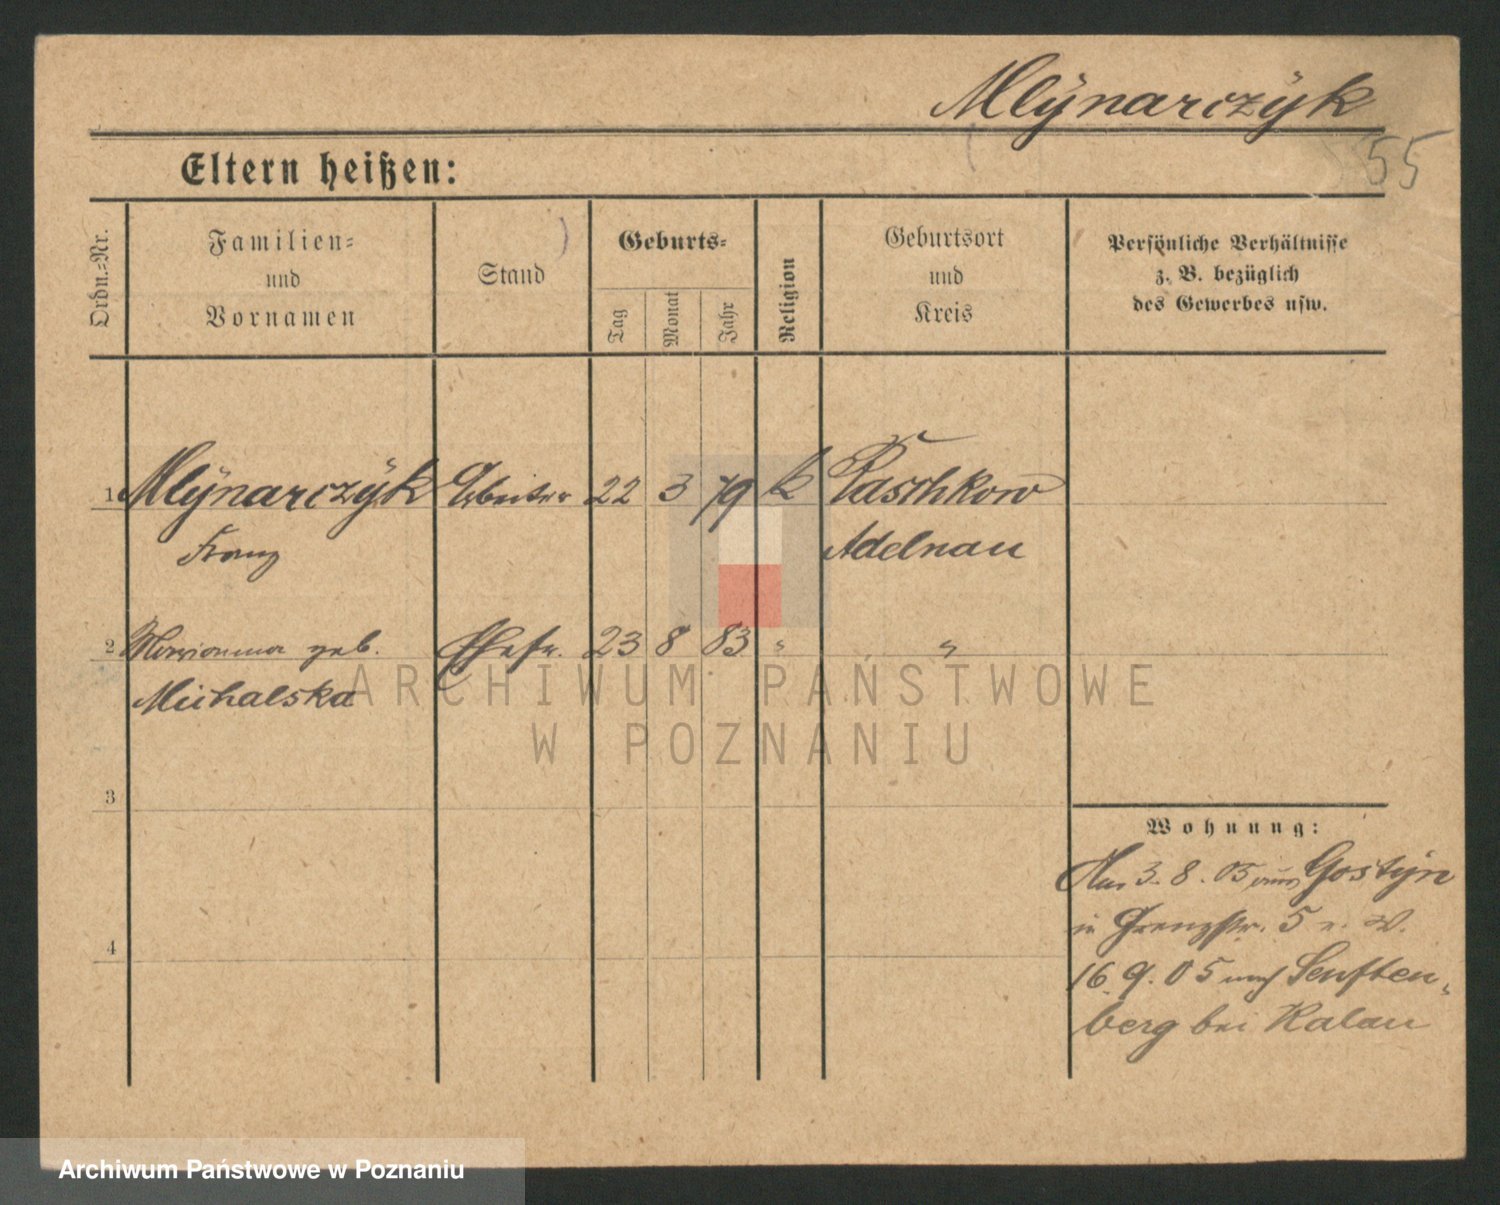 Mlÿnarczÿk
55
Eltern heißen:
Ordn.-Nr.
Familien-
und
Vornamen
Stand
Geburts-
Tag
Monat
Jahr
Religion
Geburtsort
und
Kreis
Persönliche Verhältnisse
z. B. bezüglich
des Gewerbes usw.
1 Mlÿnarczÿk Arbeiter 22 3 79 k Paschkow
Franz Adelnau
2 Marianna geb. Ehefr. 23 8 83 " "
Michalska
ARCHIWUM PAŃSTWOWE
W POZNANIU
3
4
Wohnung:
3. 8. 05 aus Gostÿn
in Grenzstr. 5 W.
16. 9. 05 nach Senften-
berg bei Kalau
Archiwum Państwowe w Poznaniu